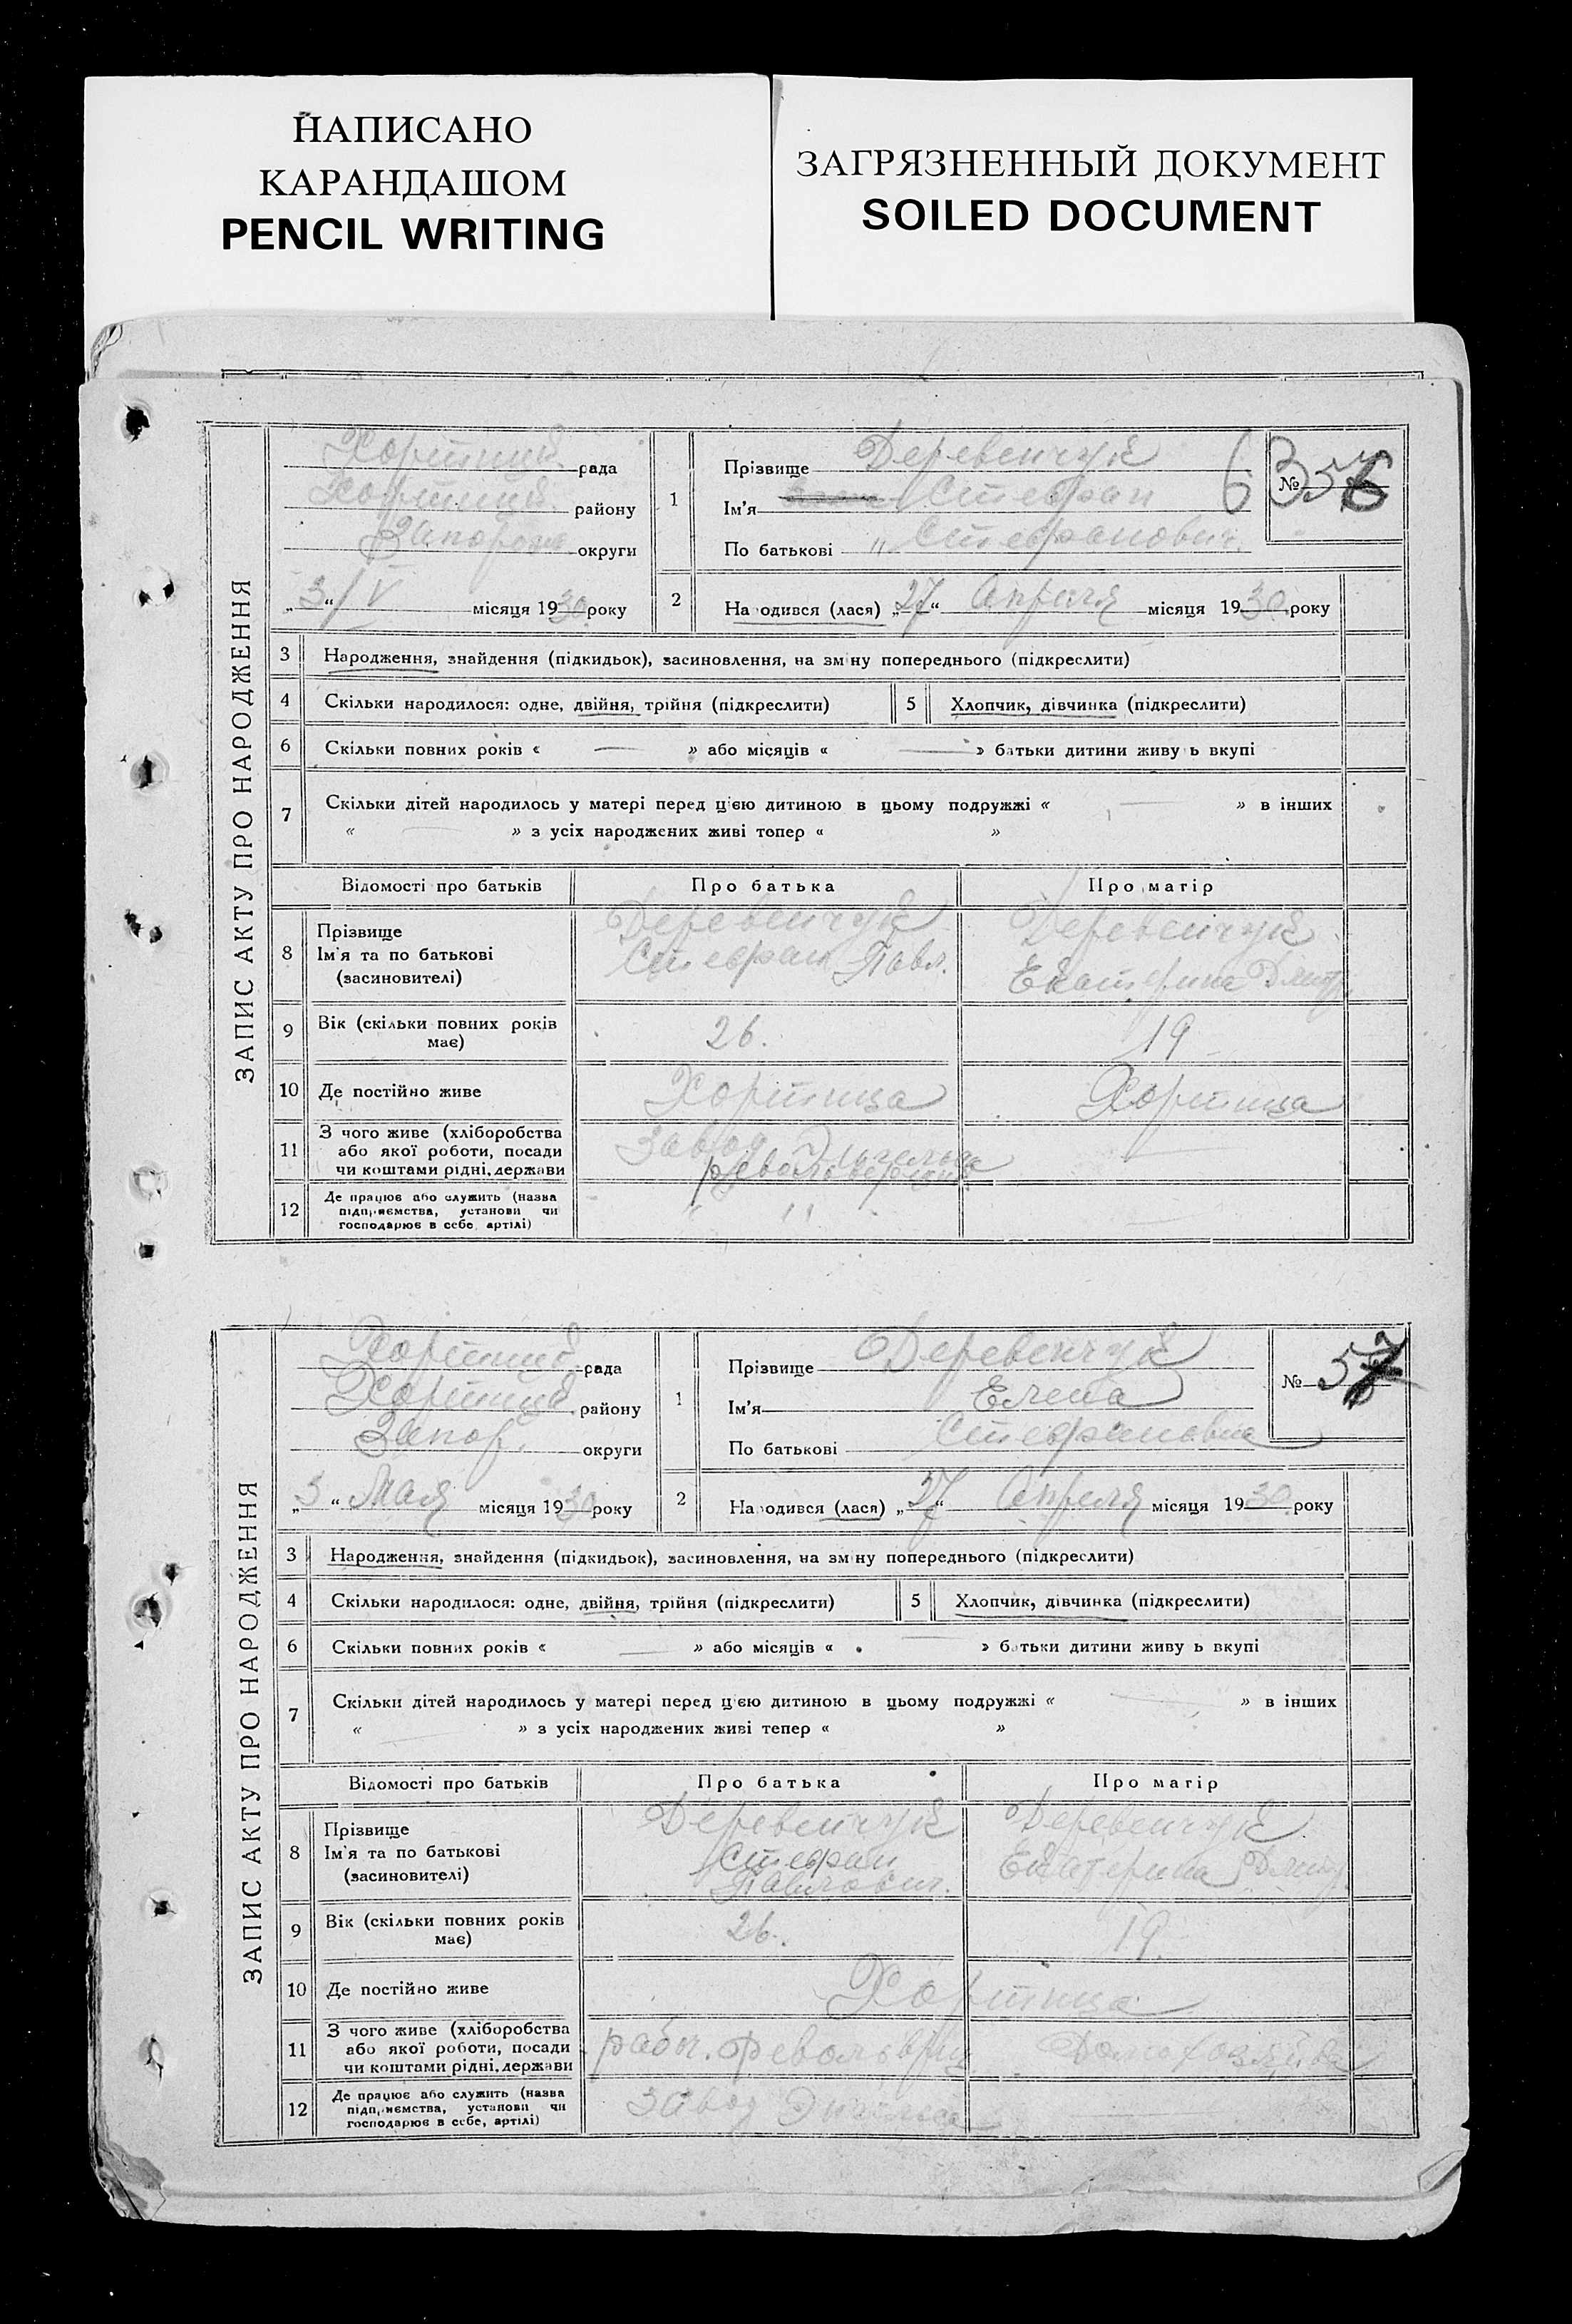 НАПИСАНО
КАРАНДАШОМ
PENCIL WRITING
ЗАГРЯЗНЕННЫЙ ДОКУМЕНТ
SOILED DOCUMENT
ЗАПИС АКТУ ПРО НАРОДЖЕННЯ
рада
району
округи
„3“/V місяця 1930 року
1
Прізвище Деревенчук
Ім'я Стефан
По батькові Стефанович
63
№ 5
2
На одився (лася) „27“ Апреля місяця 1930 року
3 Народження, знайдення (підкидьок), засиновлення, на зміну попереднього (підкреслити)
4 Скільки народилося: одне, двійня, трійня (підкреслити) 5 Хлопчик, дівчинка (підкреслити)
6 Скільки повних років « — » або місяців « — » батьки дитини живу ь вкупі
7 Скільки дітей народилось у матері перед цією дитиною в цьому подружжі « — » в інших
« — » з усіх народжених живі тепер « »
Відомості про батьків Про батька Про матір
8 Прізвище
Ім'я та по батькові
(засиновителі)
Деревенчук
Стефан Павл.
Деревенчук
Екатерина Дмитр.
9 Вік (скільки повних років
має)
26. 19
10 Де постійно живе Хортица Хортица
11 З чого живе (хліборобства
або якої роботи, посади
чи коштами рідні, держави
Завод Энгельса
12 Де працює або служить (назва
підприємства, установи чи
господарює в себе, артілі)
" "
ЗАПИС АКТУ ПРО НАРОДЖЕННЯ
рада
району
Запор. округи
„3“ Мая місяця 1930 року
1
Прізвище Деревенчук
Ім'я Елена
По батькові Стефановна
№ 5
2
На одився (лася) „27“ Апреля місяця 1930 року
3 Народження, знайдення (підкидьок), засиновлення, на зміну попереднього (підкреслити)
4 Скільки народилося: одне, двійня, трійня (підкреслити) 5 Хлопчик, дівчинка (підкреслити)
6 Скільки повних років « — » або місяців « — » батьки дитини живу ь вкупі
7 Скільки дітей народилось у матері перед цією дитиною в цьому подружжі « — » в інших
« — » з усіх народжених живі тепер « »
Відомості про батьків Про батька Про матір
8 Прізвище
Ім'я та по батькові
(засиновителі)
Деревенчук
Стефан
Павлович.
Деревенчук
Екатерина Дмитр.
9 Вік (скільки повних років
має)
26. 19.
10 Де постійно живе Хортица
11 З чого живе (хліборобства
або якої роботи, посади
чи коштами рідні, держави
рабоч. Домохозяйка
12 Де працює або служить (назва
підприємства, установи чи
господарює в себе, артілі)
Завод Энгельса